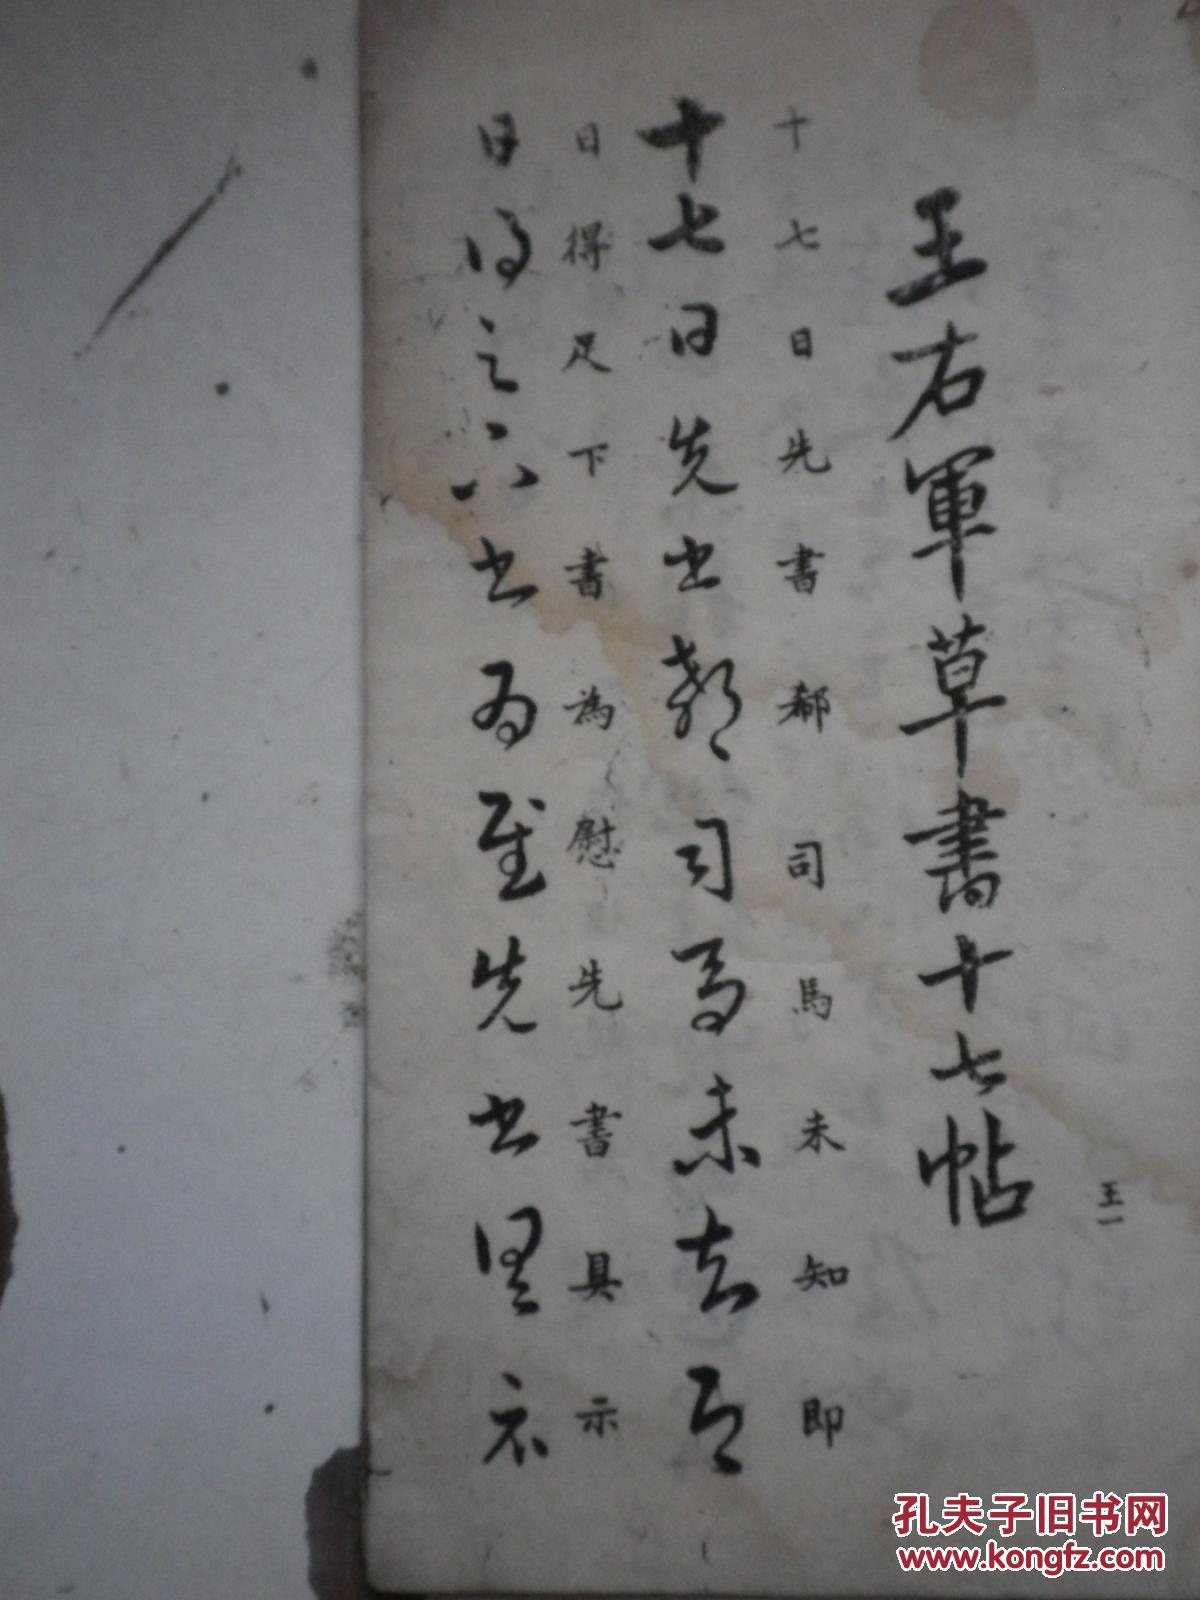 王右軍草書十七帖
王一
十七日先書郗司馬未知即
十七日先書郗司馬未去即
日得足下書為慰先書具示
日得足下書為慰先書具示
孔夫子旧书网
www.kongfz.com